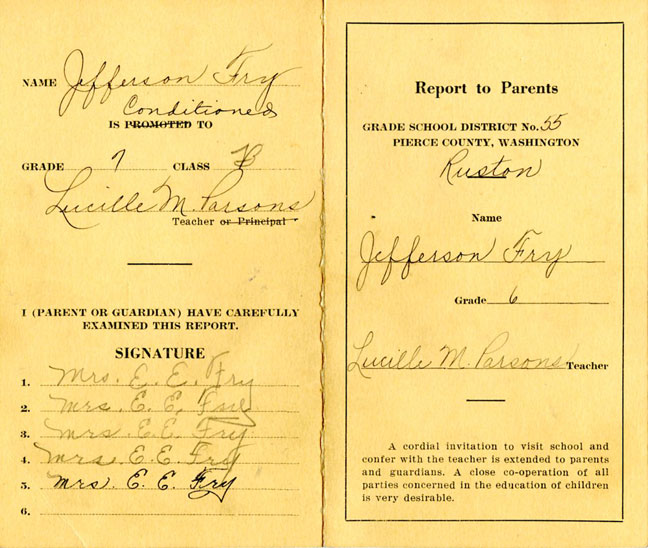 NAME Jefferson Fry
Conditioned
IS PROMOTED TO
GRADE 7 CLASS B
Lucille M. Parsons
Teacher or Principal
I (PARENT OR GUARDIAN) HAVE CAREFULLY
EXAMINED THIS REPORT.
SIGNATURE
1. Mrs. E. E. Fry
2. Mrs. E. E. Fry
3. Mrs. E. E. Fry
4. Mrs. E. E. Fry
5. Mrs. E. E. Fry
6.
Report to Parents
GRADE SCHOOL DISTRICT No. 55
PIERCE COUNTY, WASHINGTON
Ruston
Name
Jefferson Fry
Grade 6
Lucille M. Parsons Teacher
A cordial invitation to visit school and
confer with the teacher is extended to parents
and guardians. A close co-operation of all
parties concerned in the education of children
is very desirable.